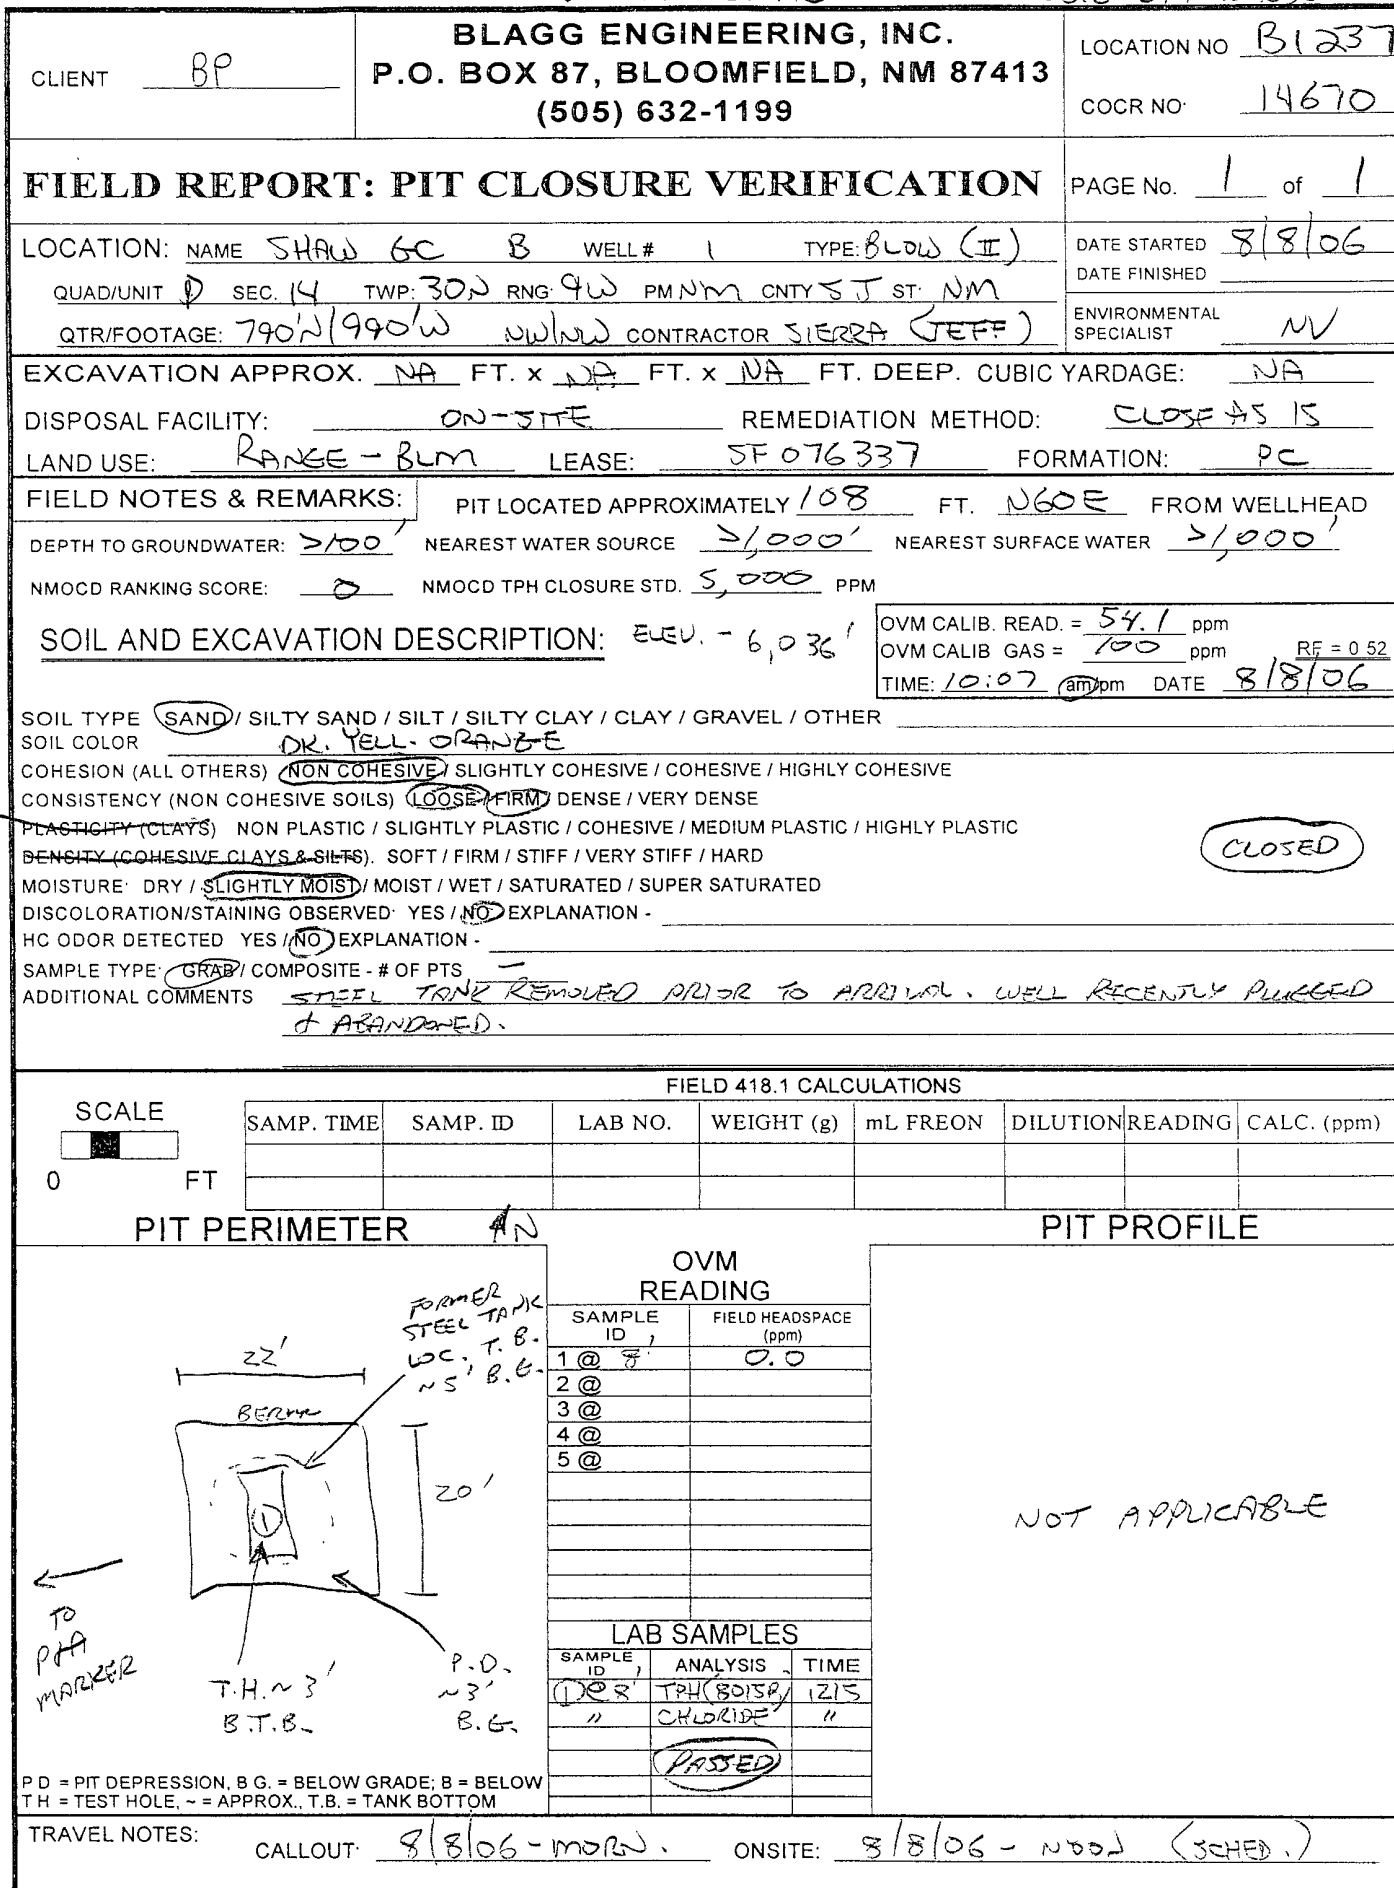 BLAGG ENGINEERING, INC.
P.O. BOX 87, BLOOMFIELD, NM 87413
(505) 632-1199
CLIENT BP
LOCATION NO B1237
COCR NO. 14670
FIELD REPORT: PIT CLOSURE VERIFICATION
PAGE No. 1 of 1
LOCATION: NAME SHAW GC B WELL # 1 TYPE: BLOW (II)
DATE STARTED 8/8/06
DATE FINISHED
QUAD/UNIT D SEC. 14 TWP: 30N RNG 9W PM NM CNTY SJ ST. NM
QTR/FOOTAGE: 790'N/990'W NW/NW CONTRACTOR SIERRA (JEFF)
ENVIRONMENTAL SPECIALIST NV
EXCAVATION APPROX. NA FT. x NA FT. x NA FT. DEEP. CUBIC YARDAGE: NA
DISPOSAL FACILITY: ON-SITE REMEDIATION METHOD: CLOSE AS IS
LAND USE: RANGE - BLM LEASE: SF 076337 FORMATION: PC
FIELD NOTES & REMARKS: PIT LOCATED APPROXIMATELY 108 FT. N60E FROM WELLHEAD
DEPTH TO GROUNDWATER: >100' NEAREST WATER SOURCE >1,000' NEAREST SURFACE WATER >1,000'
NMOCD RANKING SCORE: 0 NMOCD TPH CLOSURE STD. 5,000 PPM
SOIL AND EXCAVATION DESCRIPTION: ELEV. - 6,036'
OVM CALIB. READ. = 54.1 ppm
OVM CALIB GAS = 100 ppm RF = 0 52
TIME: 10:07 am/pm DATE 8/8/06
SOIL TYPE SAND / SILTY SAND / SILT / SILTY CLAY / CLAY / GRAVEL / OTHER
SOIL COLOR DK. YELL. ORANGE
COHESION (ALL OTHERS) NON COHESIVE / SLIGHTLY COHESIVE / COHESIVE / HIGHLY COHESIVE
CONSISTENCY (NON COHESIVE SOILS) LOOSE / FIRM / DENSE / VERY DENSE
PLASTICITY (CLAYS) NON PLASTIC / SLIGHTLY PLASTIC / COHESIVE / MEDIUM PLASTIC / HIGHLY PLASTIC
DENSITY (COHESIVE CLAYS & SILTS). SOFT / FIRM / STIFF / VERY STIFF / HARD
CLOSED
MOISTURE DRY / SLIGHTLY MOIST / MOIST / WET / SATURATED / SUPER SATURATED
DISCOLORATION/STAINING OBSERVED YES / NO EXPLANATION -
HC ODOR DETECTED YES / NO EXPLANATION -
SAMPLE TYPE GRAB / COMPOSITE - # OF PTS —
ADDITIONAL COMMENTS STEEL TANK REMOVED PRIOR TO ARRIVAL. WELL RECENTLY PLUGGED
& ABANDONED.
FIELD 418.1 CALCULATIONS
SCALE
0 FT
SAMP. TIME SAMP. ID LAB NO. WEIGHT (g) mL FREON DILUTION READING CALC. (ppm)
PIT PERIMETER N
PIT PROFILE
FORMER
STEEL TANK
LOC. T.B.
~5' B.G.
22'
BERM
20'
1
TO
P&A
MARKER
T.H. ~3'
B.T.B.
P.D.
~3'
B.G.
OVM
READING
SAMPLE ID FIELD HEADSPACE (ppm)
1 @ 8' 0.0
2 @
3 @
4 @
5 @
LAB SAMPLES
SAMPLE ID ANALYSIS TIME
1@8' TPH(8015B) 1215
" CHLORIDE "
PASSED
NOT APPLICABLE
P D = PIT DEPRESSION, B G. = BELOW GRADE; B = BELOW
T H = TEST HOLE, ~ = APPROX., T.B. = TANK BOTTOM
TRAVEL NOTES: CALLOUT 8/8/06 - MORN. ONSITE: 8/8/06 - NOON (SCHED.)